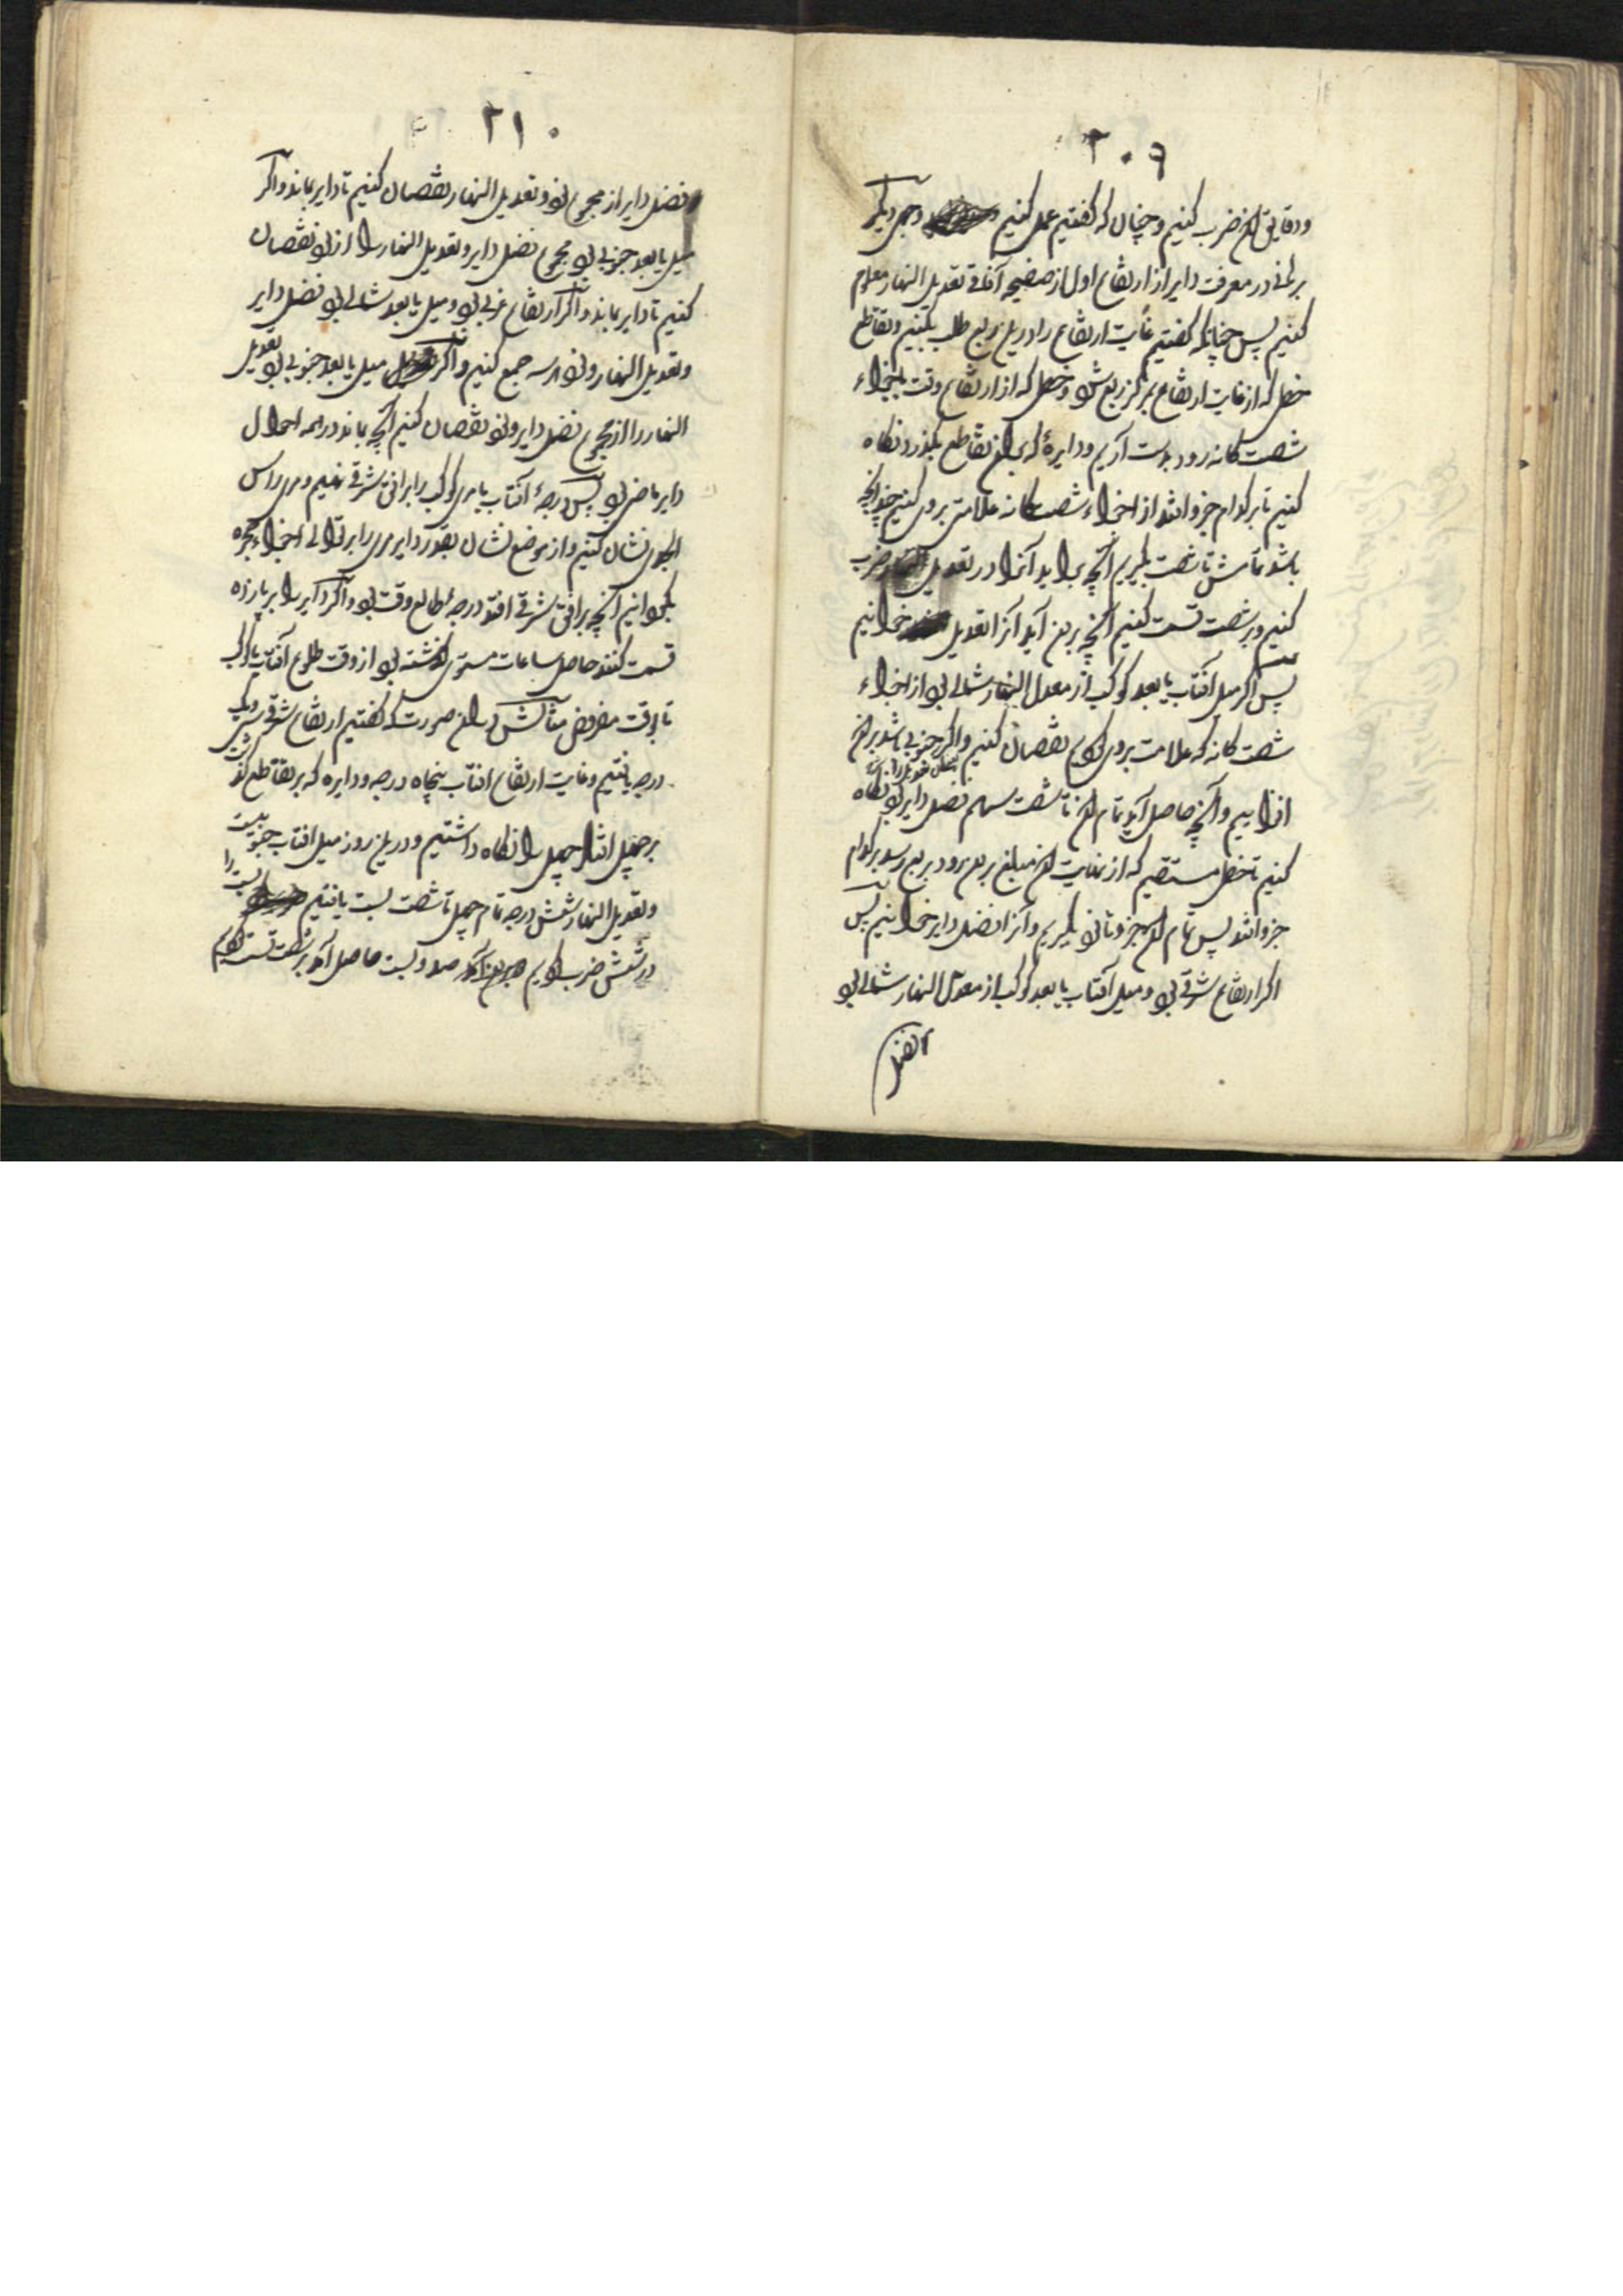 ۲۰۹
و دقایق آن ضرب کنیم و چنان که کفتیم عمل کنیم وجهی دیکر
در معرفت دایر از ارتفاع اول از صفیحه آفاقی تعدیل النهار معلوم
کنیم پس چنانکه کفتیم غایت ارتفاع را درین ربع طلب کنیم و تقاطع
خطی که از غایت ارتفاع بمرکز ربع شود و خطی که از ارتفاع وقت باجزاء
شصت کانه رود بدست آریم و دایرۀ که بران تقاطع بکذرد نکاه
کنیم تا بر کدام جزو افتد از اجزاء شصت کانه علامتی بروی کنیم چندانکه
باشد تمامش تا شصت بکیریم آنچه براید آنرا در تعدیل النهار ضرب
کنیم و بر شصت قسمت کنیم آنچه برون آید آنرا تعدیل خوانیم
پس اکر میل آفتاب یا بعد کوکب از معدل النهار شمالی بود از اجزاء
شصت کانه که علامت بروی کردیم نقصان کنیم و اکر جنوبی باشد بران
افزاییم و آنچه حاصل آید تمام آن تا شصت سهم فضل دایر بود نکاه
کنیم تا خطی مستقیم که از نهایت آن مبلغ برین رود بربع رسد بر کدام
جزو افتد پس تمام آن جزو تا نود بکیریم و آنرا فضل دایر خوانیم پس
اکر ارتفاع شرقی بود و میل آفتاب یا بعد کوکب از معدل النهار شمالی بود
فضل
۲۱۰
فضل دایر از مجموع نود و تعدیل النهار نقصان کنیم تا دایر بماند و اکر
میل یا بعد جنوبی بود مجموع فضل دایر و تعدیل النهار را از نود نقصان
کنیم تا دایر بماند و اکر ارتفاع غربی بود و میل یا بعد شمالی بود فضل دایر
و تعدیل النهار و نود هر سه جمع کنیم و اکر میل یا بعد جنوبی بود تعدیل
النهار را از مجموع فضل دایر و نود نقصان کنیم آنچه بماند در همه احوال
دایر ماضی بود پس درجۀ آفتاب یا مری کوکب را بر افق شرقی نهیم و مری راس
الجدی نشان کنیم و از موضع نشان بقدر دایر مری را بر توالی اجزاء حجره
بکردانیم آنچه بر افق شرقی افتد درجۀ طالع وقت بود و اکر دایر را بر پازده
قسمت کنند حاصل ساعات مستوی کذشته بود از وقت طلوع آفتاب یا کوکب
تا وقت مفروض مثالش دران صورت که کفتیم ارتفاع شرقی سی و یک
درجه یافتیم و غایت ارتفاع افتاب پنجاه درجه و دایره که بر تقاطع کذشت
بر چهل افتاد چهل را نکاه داشتیم و درین روز میل افتاب جنوبیست
و تعدیل النهار شش درجه تمام چهل تا شصت بیست یافتیم بیست را
در شش ضرب کردیم صد و بیست حاصل آمد بر شصت قسمت کردیم